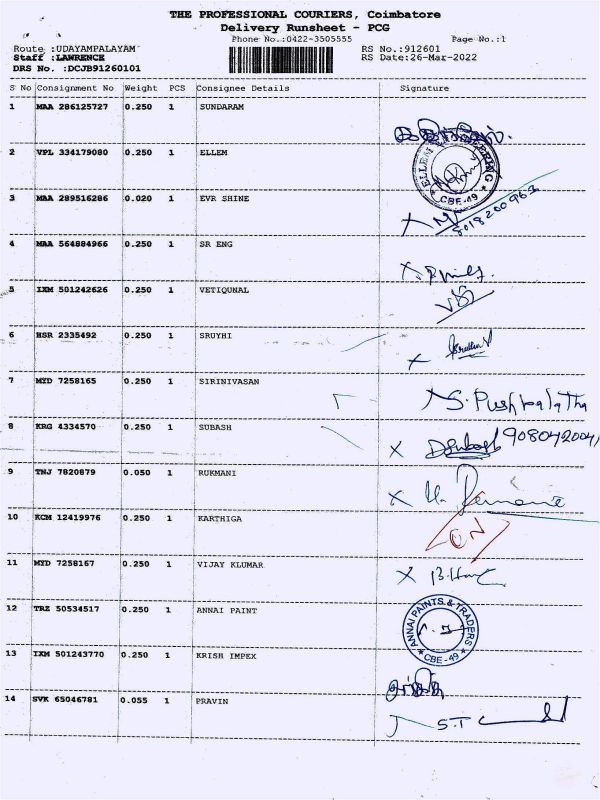 THE PROFESSIONAL COURIERS, Coimbatore
Delivery Runsheet - PCG
Phone No.:0422-3505555 Page No.:1
Route :UDAYAMPALAYAM RS No.:912601
Staff :LAWRENCE RS Date:26-Mar-2022
DRS No. :DCJB91260101
S No Consignment No Weight PCS Consignee Details Signature
1 MAA 286125727 0.250 1 SUNDARAM
2 VPL 334179080 0.250 1 ELLEM
CBE-49
3 MAA 289516286 0.020 1 EVR SHINE
8018200963
4 MAA 564884966 0.250 1 SR ENG
5 IXM 501242626 0.250 1 VETIQUNAL
6 HSR 2335492 0.250 1 SRUYHI
7 MYD 7258165 0.250 1 SIRINIVASAN S. Pushpalatha
8 KRG 4334570 0.250 1 SUBASH X DSubash 908042004
9 TNJ 7820879 0.050 1 RUKMANI X
10 KCM 12419976 0.250 1 KARTHIGA
11 MYD 7258167 0.250 1 VIJAY KLUMAR X
12 TRZ 50534517 0.250 1 ANNAI PAINT ANNAI PAINTS & TRADERS
CBE-49
13 IXM 501243770 0.250 1 KRISH IMPEX
14 SVK 65046781 0.055 1 PRAVIN S.T